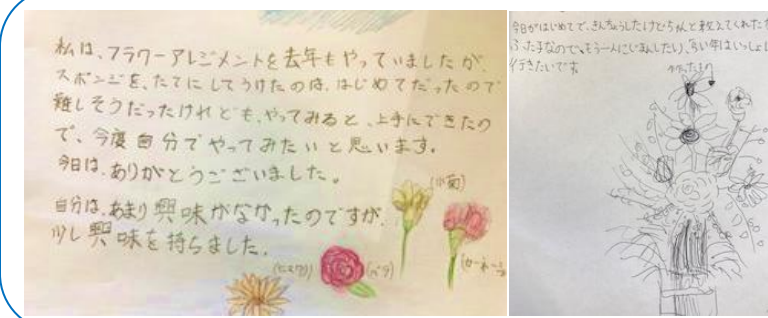 私は、フラワーアレジメントを去年もやっていましたが、
スポンジを、たてにしてうけたのは、はじめてだったので
難しそうだったけれども、やってみると、上手にできたの
で、今度自分でやってみたいと思います。
今日は、ありがとうございました。
自分は、あまり興味がなかったのですが、
少し興味を持ちました。
(小菊)
(ヒマワリ)
(バラ)
今日がはじめてで、きんちょうしたけどちゃんと教えてくれた
行きたいです